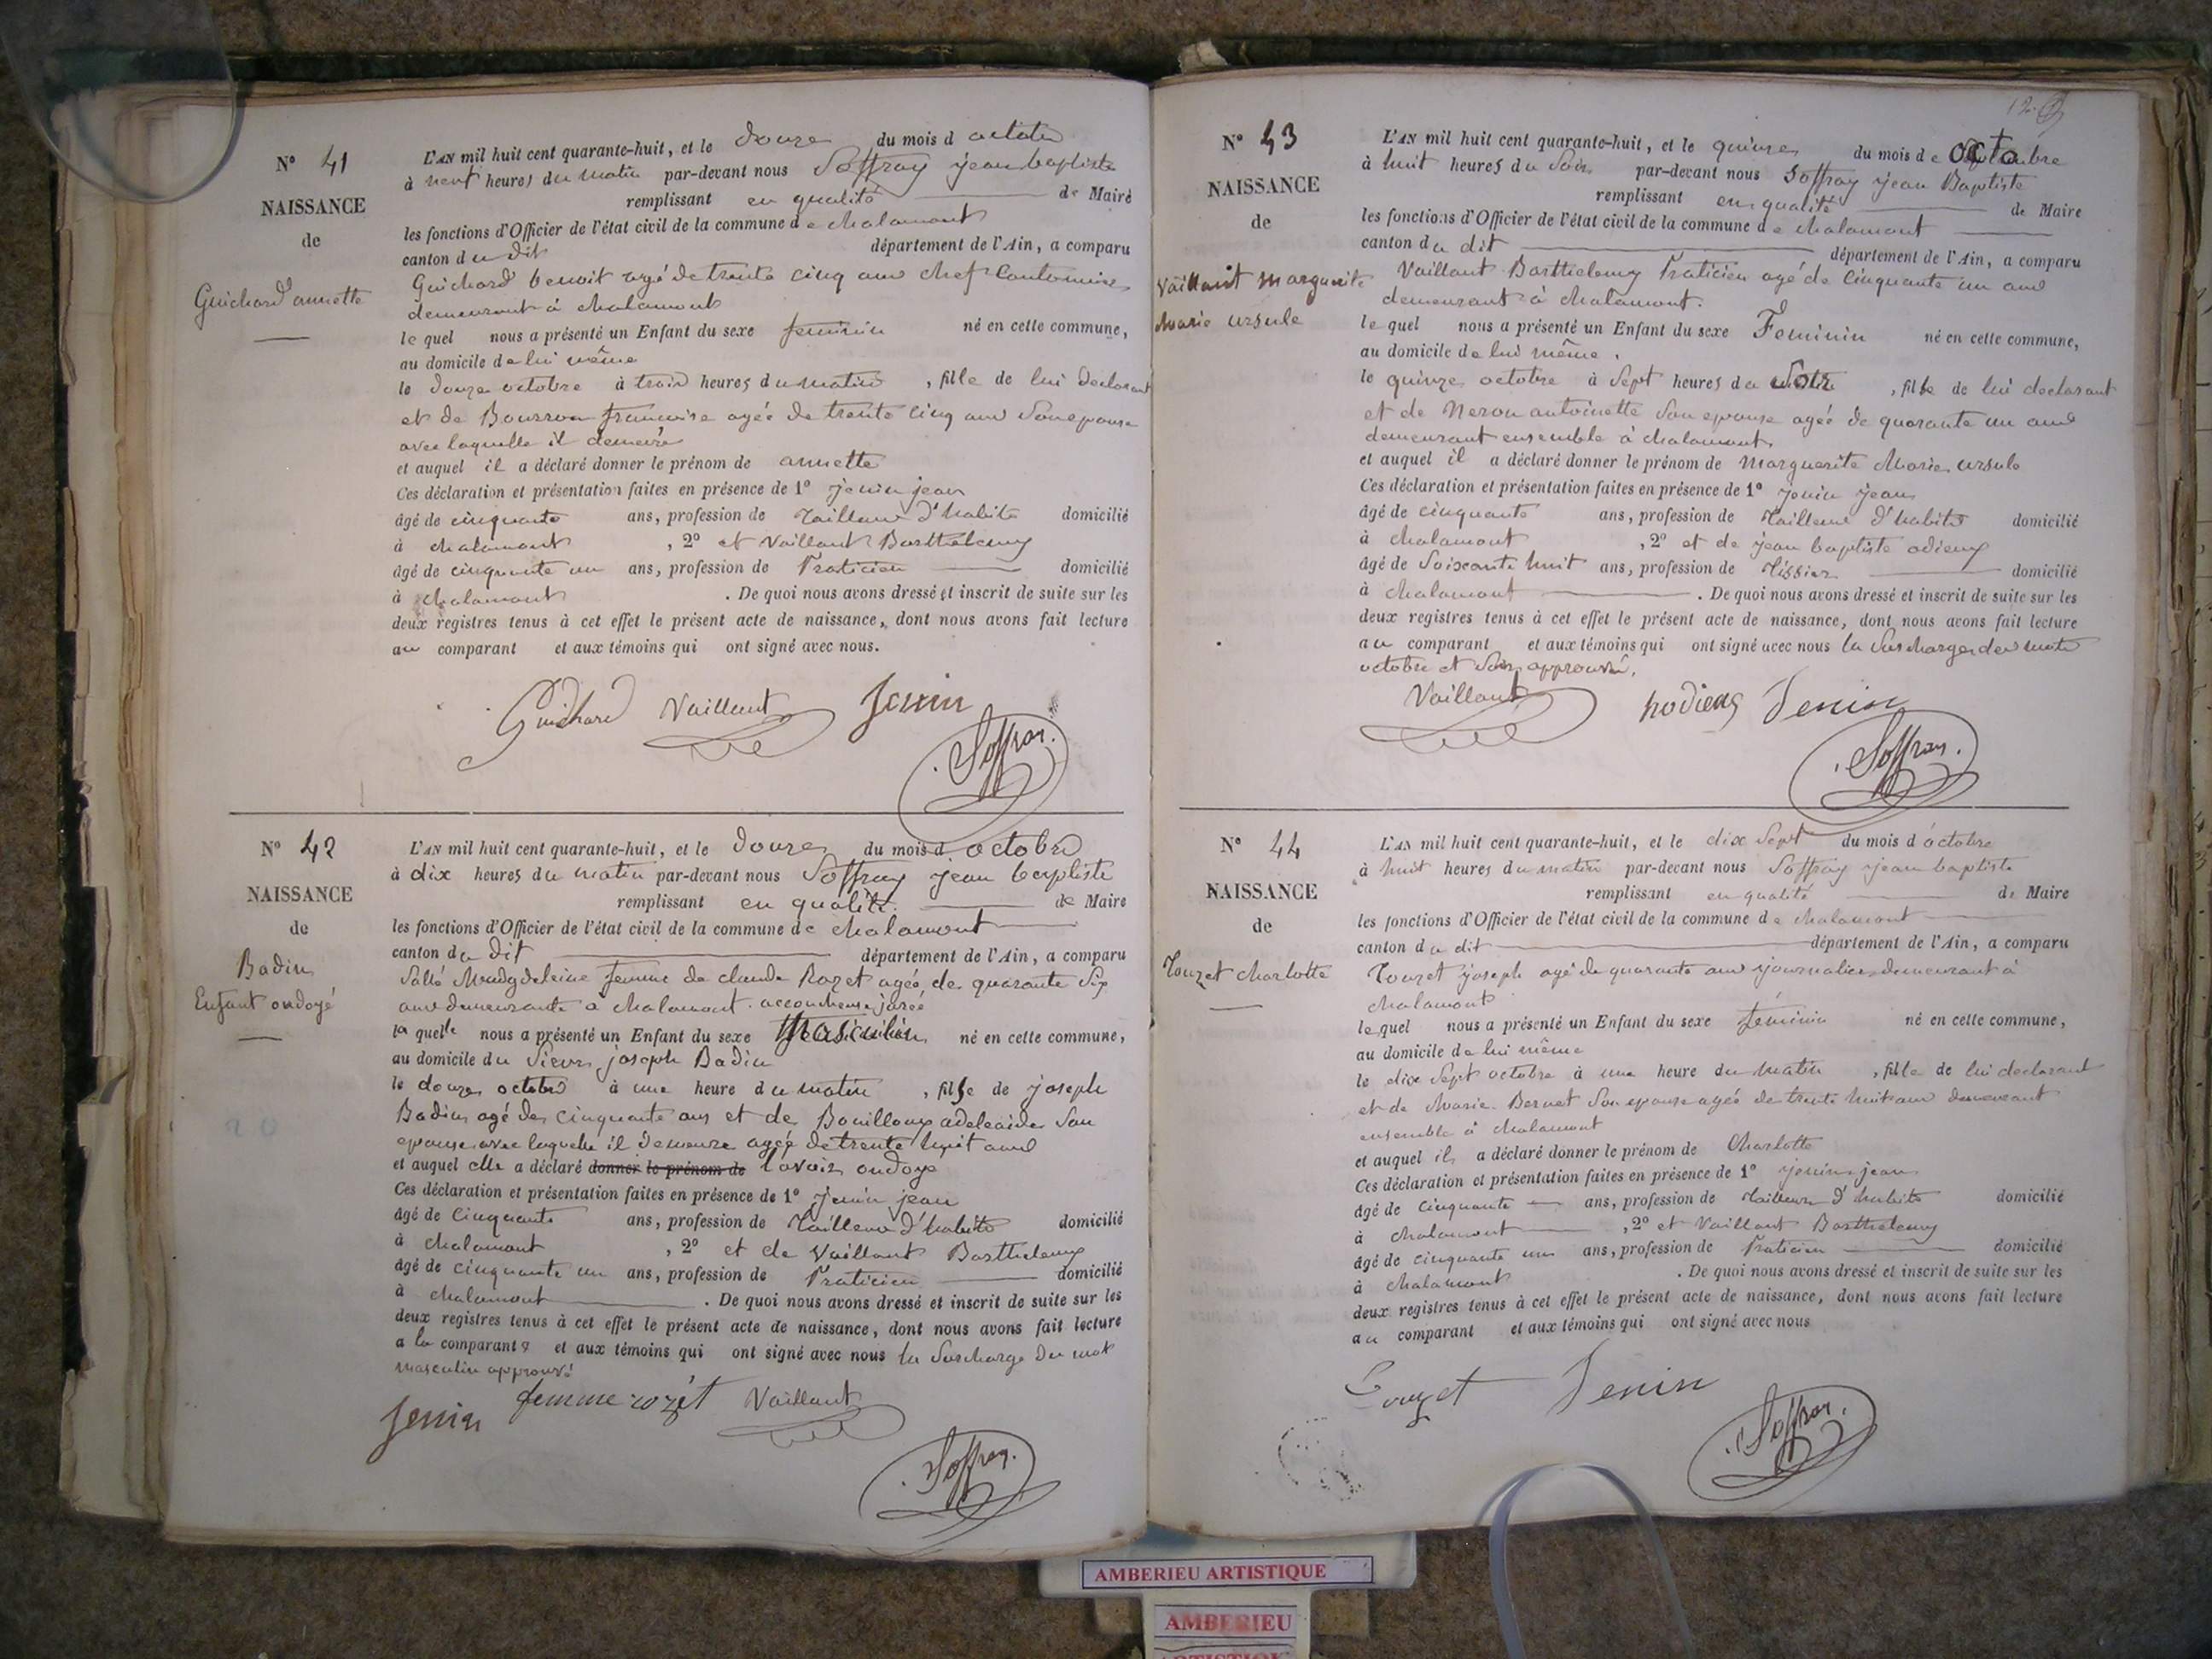 N° 41
NAISSANCE
de
Guichard annette
L'AN mil huit cent quarante-huit, et le douze du mois d octobre
à neuf heures du matin par-devant nous Soffray jean baptiste
remplissant en qualité de Maire
les fonctions d'Officier de l'état civil de la commune de chalamont
canton du dit département de l'Ain, a comparu
Guichard benoit agé de trente cinq ans chef Cantonnier
demeurant à chalamont
le quel nous a présenté un Enfant du sexe feminin né en cette commune,
au domicile de lui même
le douze octobre à trois heures du matin , fille de lui declarant
et de Bourron francoise agée de trente cinq ans Son epouse
avec laquelle il demeure
et auquel il a déclaré donner le prénom de annette
Ces déclaration et présentation faites en présence de 1° jenin jean
âgé de cinquante ans, profession de Tailleur d'habits domicilié
à chalamont , 2° et Vaillant Barthelemy
âgé de cinquante un ans, profession de Praticien domicilié
à chalamont . De quoi nous avons dressé et inscrit de suite sur les
deux registres tenus à cet effet le présent acte de naissance, dont nous avons fait lecture
au comparant et aux témoins qui ont signé avec nous.
Guichard Vaillant Jenin
Soffray
N° 42
NAISSANCE
de
Badin
Enfant ondoyé
L'AN mil huit cent quarante-huit, et le douze du mois d octobre
à dix heures du matin par-devant nous Soffray jean baptiste
remplissant en qualité de Maire
les fonctions d'Officier de l'état civil de la commune de chalamont
canton du dit département de l'Ain, a comparu
Sallé Madgdeleine femme de claude Rozet agée de quarante Sep
ans demeurante à chalamont accoucheuse jurée
la quelle nous a présenté un Enfant du sexe Masculin né en cette commune,
au domicile du Sieur joseph Badin
le douze octobre à une heure du matin , fils de joseph
Badin agé de cinquante ans et de Bouilloux adeleaide Son
epouse avec laquelle il demeure agée de trente huit ans
et auquel elle a déclaré donner le prénom de l'avoir ondoye
Ces déclaration et présentation faites en présence de 1° jenin jean
âgé de cinquante ans, profession de Tailleur d'habits domicilié
à chalamont , 2° et de Vaillant Barthelemy
âgé de cinquante un ans, profession de Praticien domicilié
à chalamont . De quoi nous avons dressé et inscrit de suite sur les
deux registres tenus à cet effet le présent acte de naissance, dont nous avons fait lecture
a la comparante et aux témoins qui ont signé avec nous la Surcharge du mot
masculin approuvé
Jenin femme rozet Vaillant
Soffray
N° 43
NAISSANCE
de
Vaillant Marguerite
Marie ursule
L'AN mil huit cent quarante-huit, et le quinze du mois de octobre
à huit heures du Soir par-devant nous Soffray jean Baptiste
remplissant en qualité de Maire
les fonctions d'Officier de l'état civil de la commune de chalamont
canton du dit département de l'Ain, a comparu
Vaillant Barthelemy Praticien agé de cinquante un ans
demeurant à chalamont.
le quel nous a présenté un Enfant du sexe Feminin né en cette commune,
au domicile de lui même.
le quinze octobre à Sept heures du Soir , fille de lui declarant
et de Neron antoinette Son epouse agée de quarante un ans
demeurant ensemble à chalamont.
et auquel il a déclaré donner le prénom de Marguerite Marie ursule
Ces déclaration et présentation faites en présence de 1° jenin jean
âgé de cinquante ans, profession de Tailleur d'habits domicilié
à chalamont , 2° et de jean baptiste odieux
âgé de Soixante huit ans, profession de Tissier domicilié
à chalamont . De quoi nous avons dressé et inscrit de suite sur les
deux registres tenus à cet effet le présent acte de naissance, dont nous avons fait lecture
au comparant et aux témoins qui ont signé avec nous la Surcharge des mots
octobre et Soir approuvé.
Vaillant Jenin
Soffray
N° 44
NAISSANCE
de
Touzet charlotte
L'AN mil huit cent quarante-huit, et le dix Sept du mois d'octobre
à huit heures du matin par-devant nous Soffray jean baptiste
remplissant en qualité de Maire
les fonctions d'Officier de l'état civil de la commune de chalamont
canton du dit département de l'Ain, a comparu
Touzet joseph agé de quarante ans journalier demeurant à
chalamont
le quel nous a présenté un Enfant du sexe féminin né en cette commune,
au domicile de lui même
le dix Sept octobre à une heure du matin , fille de lui declarant
et de Marie Bernet Son epouse agée de trente huit ans demeurant
ensemble à chalamont
et auquel il a déclaré donner le prénom de Charlotte
Ces déclaration et présentation faites en présence de 1° jenin jean
âgé de cinquante ans, profession de Tailleur d'habits domicilié
à chalamont , 2° et Vaillant Barthelemy
âgé de cinquante un ans, profession de Praticien domicilié
à chalamont . De quoi nous avons dressé et inscrit de suite sur les
deux registres tenus à cet effet le présent acte de naissance, dont nous avons fait lecture
au comparant et aux témoins qui ont signé avec nous
Touzet Jenin
Soffray
AMBERIEU ARTISTIQUE
AMBERIEU
ARTISTIQUE